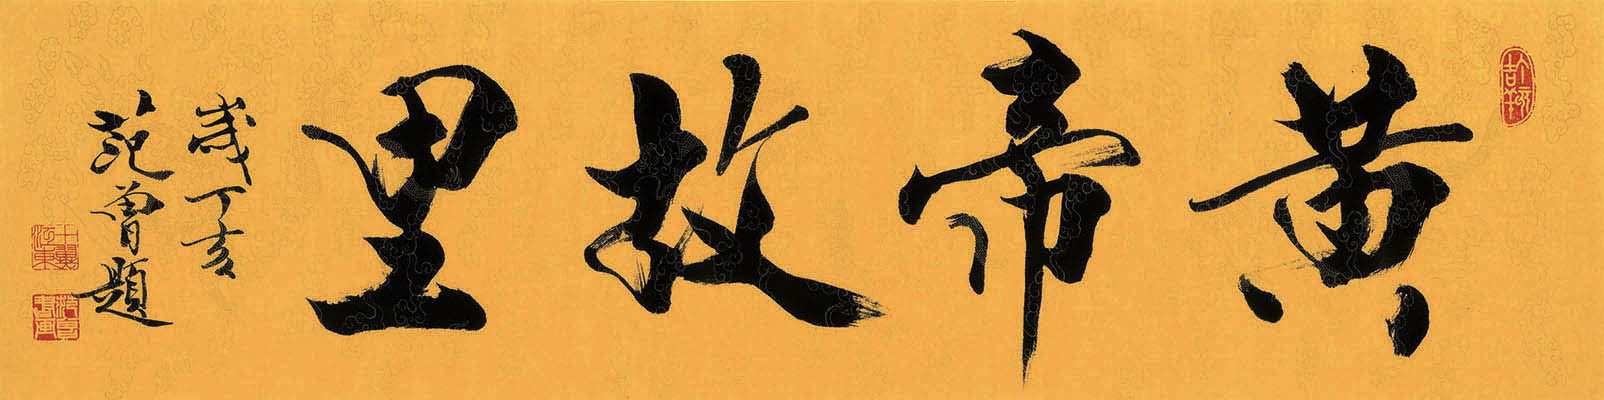 黄帝故里
岁丁亥
范曾题